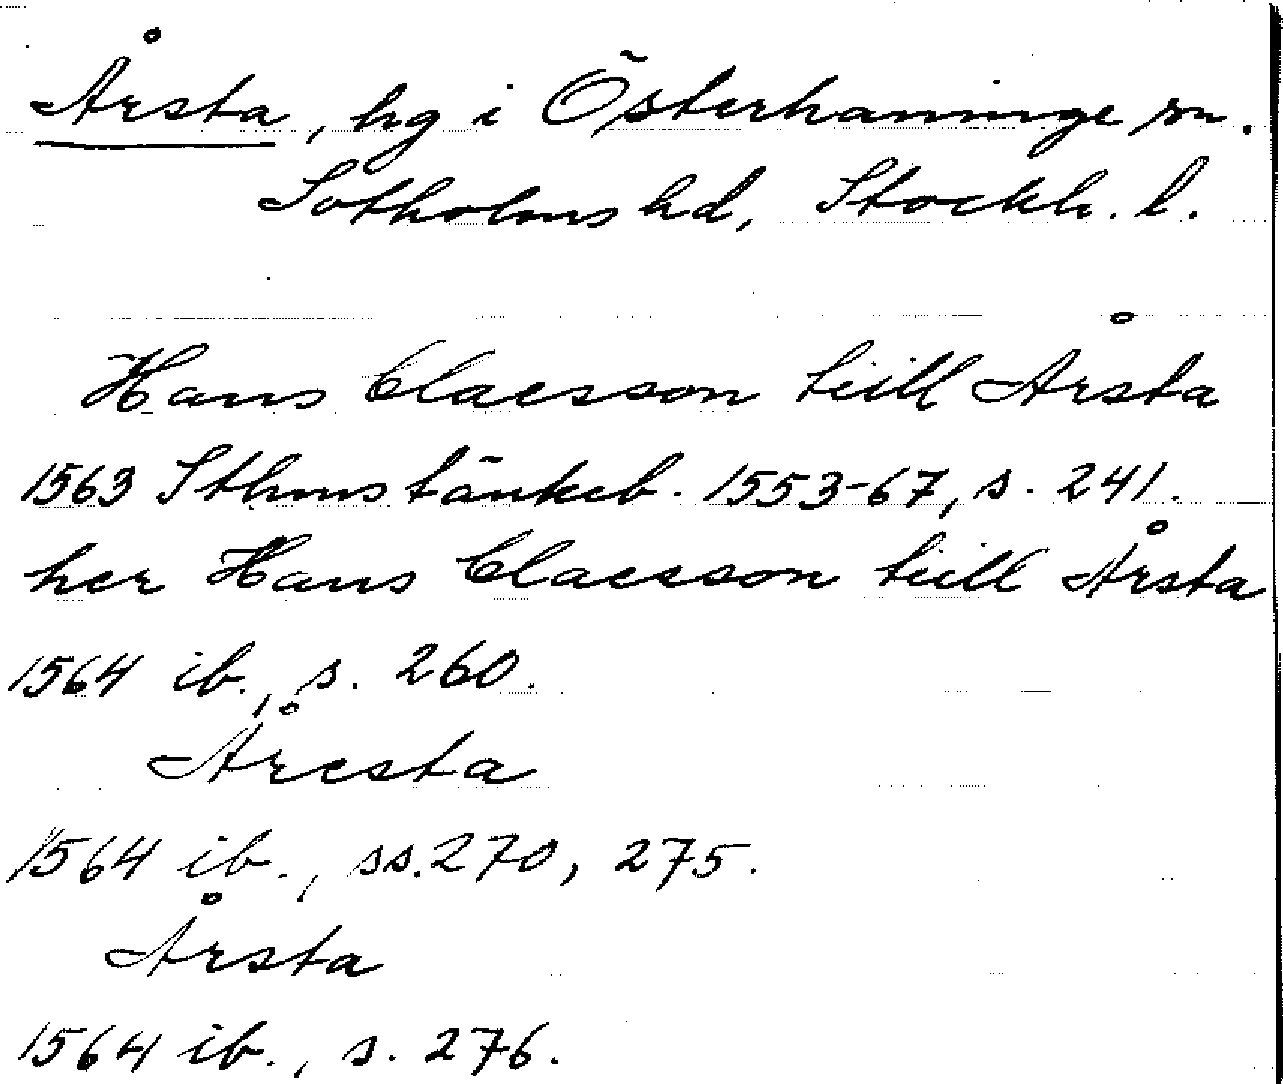 Årsta, hg i Österhaninge sn.
Sotholms hd, Stockh. l.
Hans Claesson tiill Årsta
1563 Sthms tänkeb. 1553-67, s. 241.
her Hans Claesson tiill Årsta
1564 ib., s. 260.
Åresta
1564 ib., ss. 270, 275.
Årsta
1564 ib., s. 276.